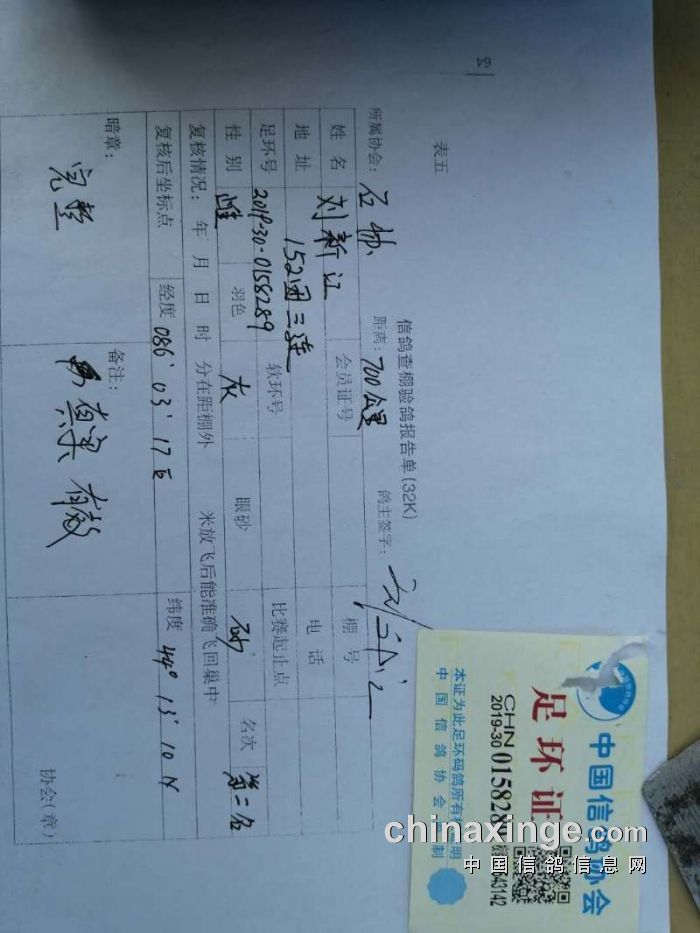 64
表五
信鸽查棚验鸽报告单(32K)
所属协会: 石协 距离: 700公里 鸽主签字:
姓名 刘新江 会员证号 棚号
地址 152团三连 电话
足环号 2019-30-0158289 软环号 比赛起止点
性别 雌 羽色 灰 眼砂 砂 名次 第二名
复核情况: 年 月 日 时 分在距棚外 米放飞后能准确飞回巢中
复核后坐标点 经度 086° 03' 17 E 纬度 44° 13' 10 N
暗章: 完整 备注: 有效
协会(章)
中国信鸽协会
足环证
CHN
2019-30 015828
43142
本证为此足环码鸽所有权证明
中国信鸽协会 制
chinaxinge.com
中国信鸽信息网